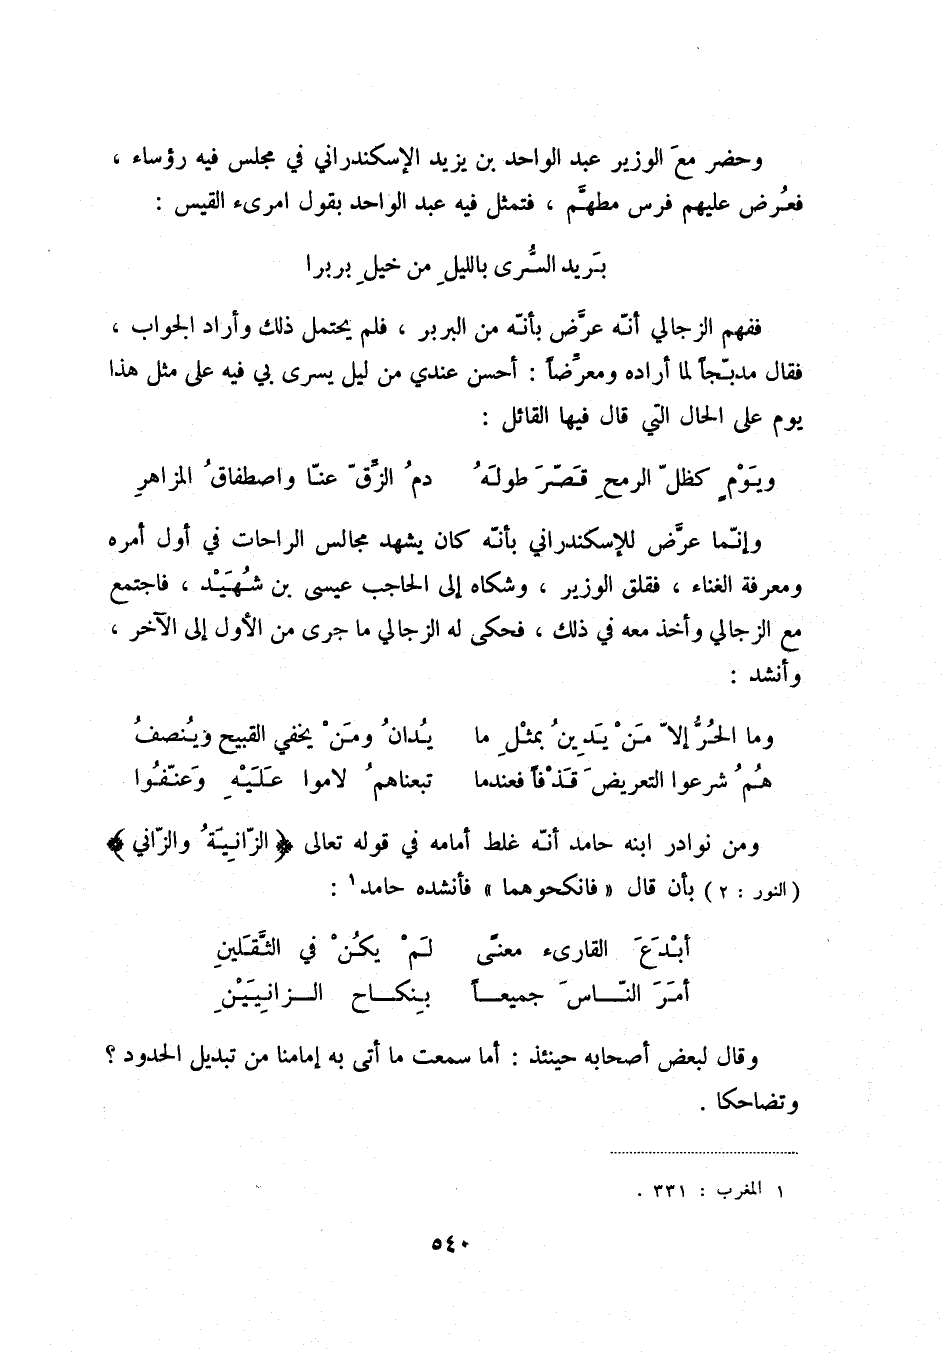 وحضر معَ الوزير عبد الواحد بن يزيد الإسكندراني في مجلس فيه رؤساء ،
فعُرض عليهم فرس مطهَّم ، فتمثل فيه عبد الواحد بقول امرىء القيس :
بَريد السُّرى بالليلِ من خيلِ بربرا
ففهم الزجالي أنّه عرَّض بأنّه من البربر ، فلم يحتمل ذلك وأراد الجواب ،
فقال مدبّجاً لما أراده ومعرِّضاً : أحسن عندي من ليل يسرى بي فيه على مثل هذا
يوم على الحال التي قال فيها القائل :
ويَوْمٍ كظلّ الرمحِ قَصّرَ طولَهُ دمُ الزِّقّ عنّا واصطفاقُ المزاهرِ
وإنّما عرَّض للإسكندراني بأنّه كان يشهد مجالس الراحات في أول أمره
ومعرفة الغناء ، فقلق الوزير ، وشكاه إلى الحاجب عيسى بن شُهَيْد ، فاجتمع
مع الزجالي وأخذ معه في ذلك ، فحكى له الزجالي ما جرى من الأول إلى الآخر ،
وأنشد :
وما الحُرُّ إلاّ مَنْ يَدِينُ بمثْلِ ما يُدانُ ومَنْ يخفي القبيح ويُنصفُ
هُمُ شرعوا التعريضَ قَذْفاً فعندما تبعناهمُ لاموا عَلَيْهِ وَعنّفُوا
ومن نوادر ابنه حامد أنّه غلط أمامه في قوله تعالى ﴿ الزّانِيَةُ والزّاني ﴾
( النور : ٢ ) بأن قال « فانكحوهما » فأنشده حامد١ :
أبْدَعَ القارىء معنًى لَمْ يكُنْ في الثَّقَلينِ
أمَرَ النّاسَ جميعاً بِنكاح الزانِيَيْنِ
وقال لبعض أصحابه حينئذ : أما سمعت ما أتى به إمامنا من تبديل الحدود ؟
وتضاحكا .
١ المغرب : ٣٣١ .
٥٤٠